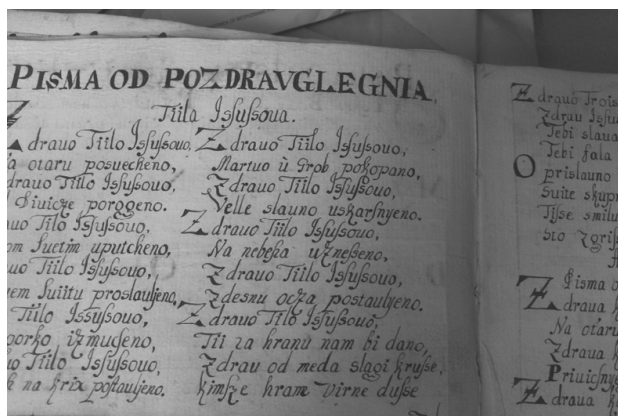 PISMA OD POZDRAVGLEGNIA
Tiila Isſuſsoua.
Zdrauo Tiilo Isſuſsouo,
otaru posuecheno,
drauo Tiilo Isſuſsouo,
Diuicze porogeno.
Tiilo Isſuſsouo,
ſuetim uputcheno,
Tiilo Isſuſsouo,
ſuiitu proslauljeno,
Tiilo Isſuſsouo,
izmuçeno,
Tiilo Isſuſsouo,
na krix poſtauljeno.
Zdrauo Tiilo Isſuſsouo,
Martuo ù grob pokopano,
Zdrauo Tiilo Isſuſsouo,
Velle slauno uskarſnyeno.
Zdrauo Tiilo Isſuſsouo,
Na nebeſa uzneſeno,
Zdrauo Tiilo Isſuſsouo,
zdesnu oçza postaulyeno.
Zdrauo Tilo Isſuſsouo,
Tii za hranu nam bi dano,
Zdrau od meda slagi kruſſe,
kimſze hram virne duſſe
Zdrauo Trois
Zdrau
Tebi slaua
Tebi fala
O prislauno
Suite skupn
Tiſse smilu
Pisma o
Zdraua
Na otaru
Zdraua
Zdraua